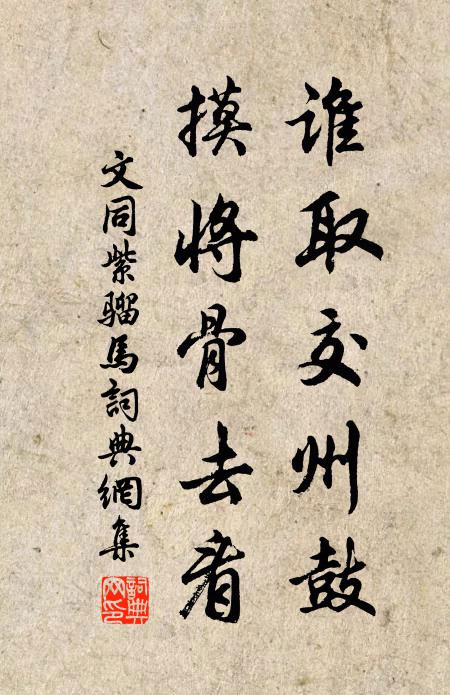 誰取交州鼓
摸將骨去看
文同紫騮馬詞典網集
詞典
网印